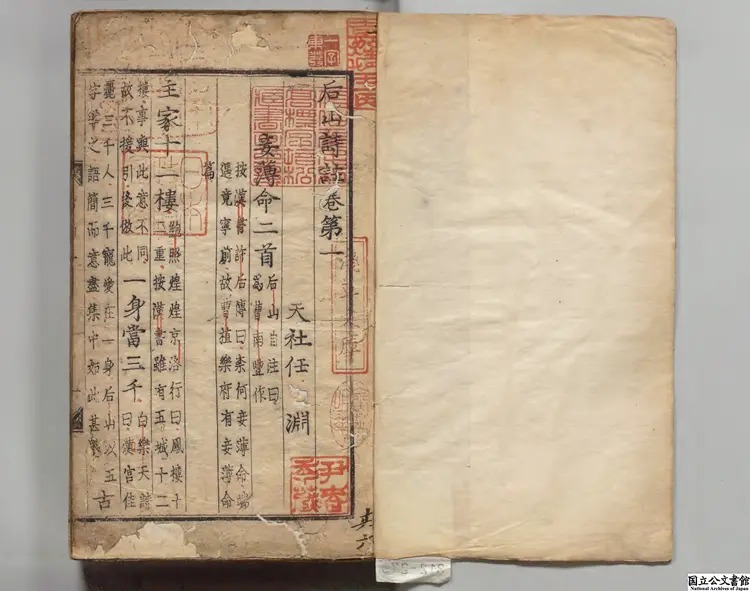 后山詩註卷第一
天社任 淵
妾薄命二首
后山自注曰
爲曾南豐作
按漢書許后傳曰奈何妾薄命端
遇竟寧前故曹植樂府有妾薄命
篇
主家十二樓
鮑照煌煌京洛行曰鳳樓十
二重按漢書雖有五城十二
樓事與此意不同
故不援引後倣此
一身當三千
白樂天詩
曰漢宮佳
麗三千人三千寵愛在一身后山以五
字 之語簡而意盡集中如此甚
古
淺草文庫
共六
国立公文書館
National Archives of Japan